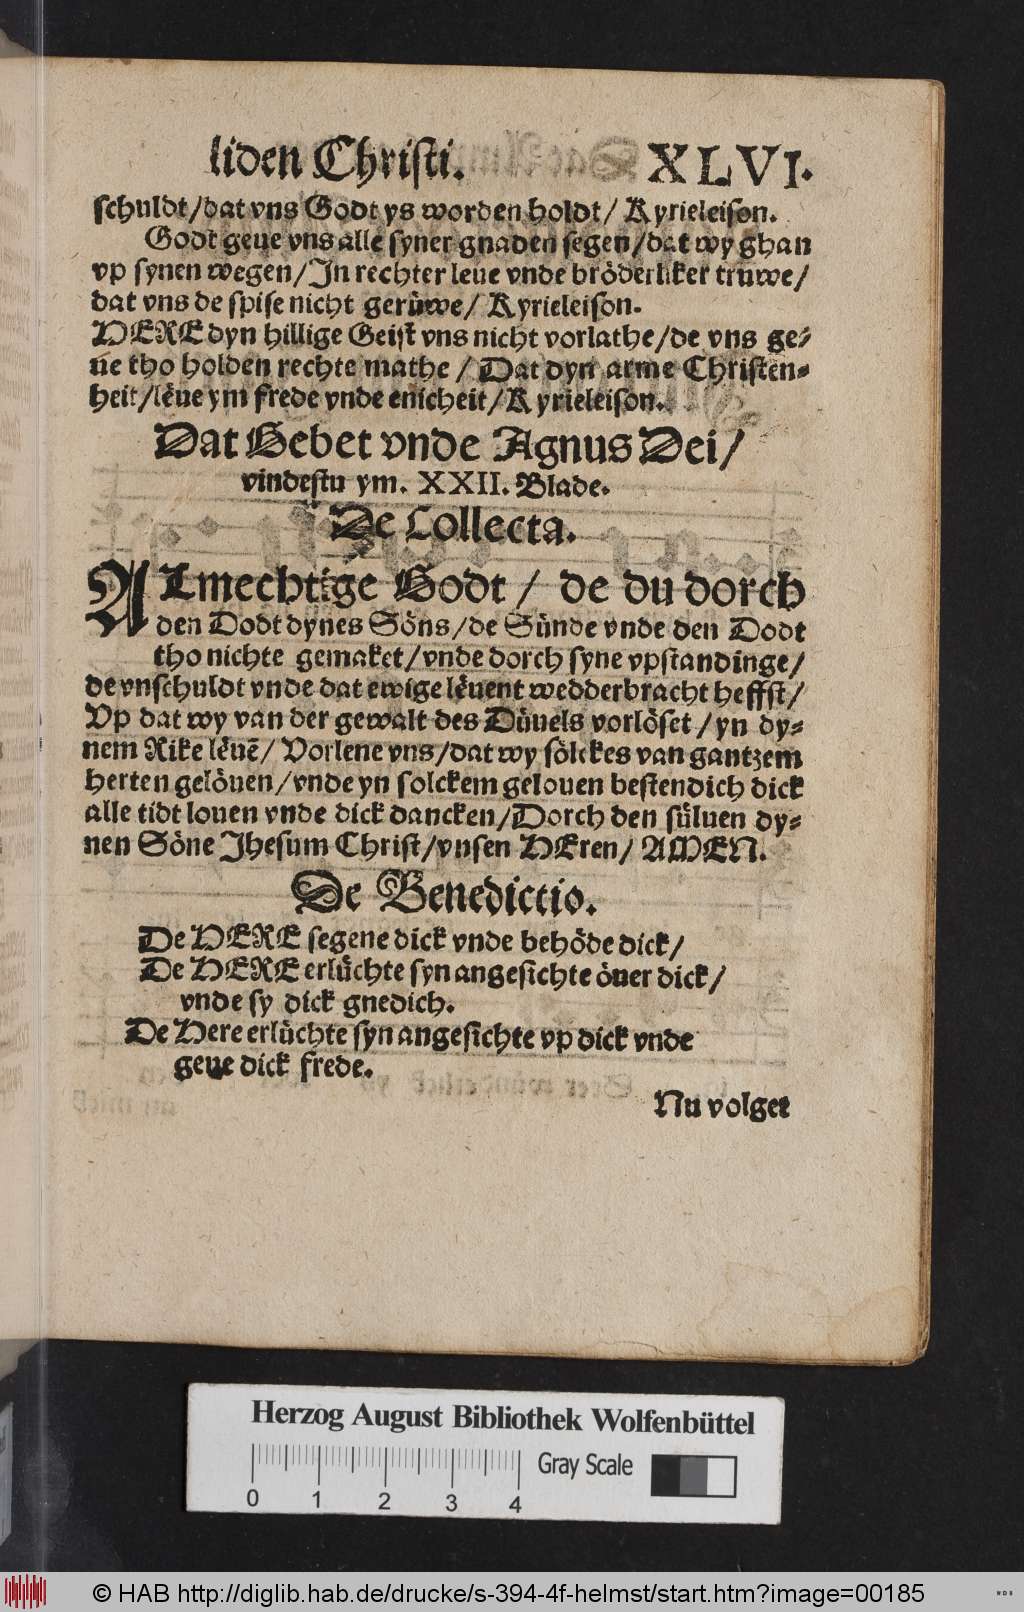 liden Christi. XLVI.
schuldt/dat vns Godt ys worden holdt/ Kyrieleison.
Godt geue vns alle syner gnaden segen/dat wy ghan
vp synen wegen/Jn rechter leue vnde bröderliker truwe/
dat vns de spise nicht gerüwe/ Kyrieleison.
HERE dyn hillige Geist vns nicht vorlathe/de vns ge-
ue tho holden rechte mathe / Dat dyn arme Christen-
heit/lëue ym frede vnde enicheit/Kyrieleison.
Dat Gebet vnde Agnus Dei/
vindestu ym. XXII. Blade.
De Collecta.
ALmechtige Godt / de du dorch
den Dodt dynes Söns/de Sünde vnde den Dodt
tho nichte gemaket/vnde dorch syne vpstandinge/
de vnschuldt vnde dat ewige lëuent wedderbracht heffst/
Vp dat wy van der gewalt des Düuels vorlöset /yn dy-
nem Rike lëuē/ Vorlene vns/dat wy sölckes van gantzem
herten gelöuen/vnde yn solckem gelouen bestendich dick
alle tidt louen vnde dick dancken/Dorch den süluen dy-
nen Söne Jhesum Christ/vnsen HEren/ AMEN.
De Benedictio.
De HERE segene dick vnde behöde dick/
De HERE erlüchte syn angesichte öuer dick/
vnde sy dick gnedich.
De Here erlüchte syn angesichte vp dick vnde
geue dick frede.
Nu volget
Herzog August Bibliothek Wolfenbüttel
Gray Scale
0 1 2 3 4
© HAB http://diglib.hab.de/drucke/s-394-4f-helmst/start.htm?image=00185